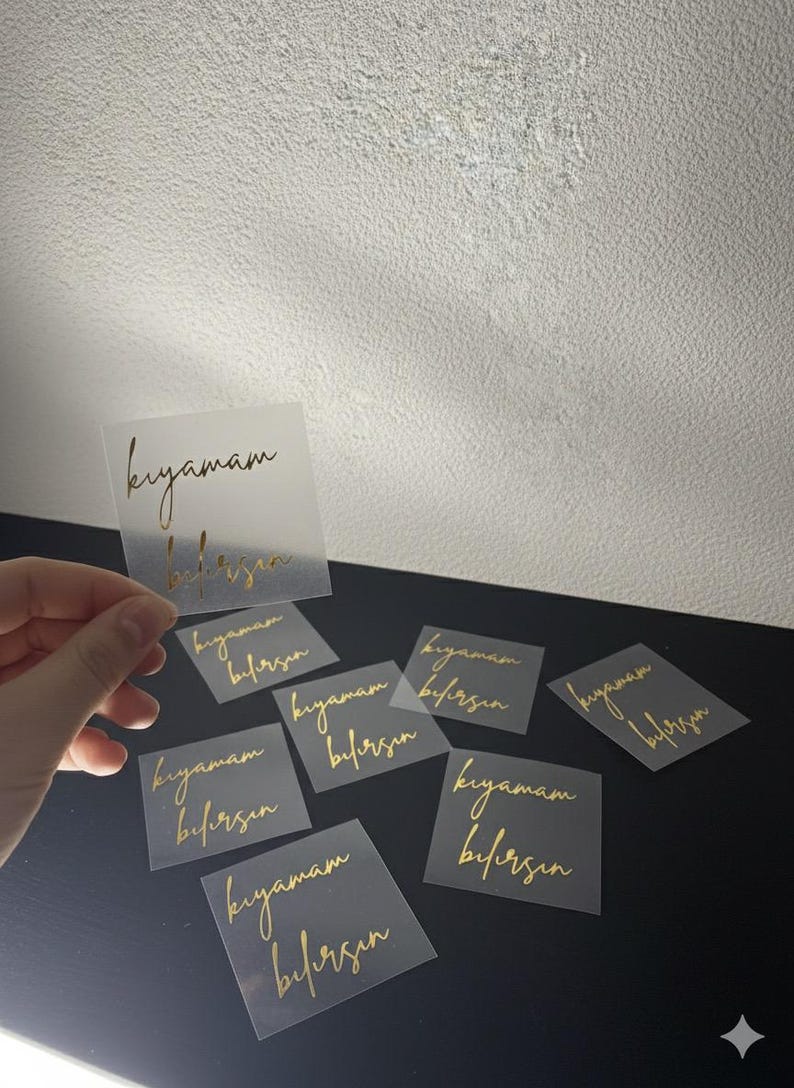 kıyamam
bılırsın
kıyamam
bılırsın
kıyamam
bılırsın
kıyamam
bılırsın
kıyamam
bılırsın
kıyamam
bılırsın
kıyamam
bılırsın
kıyamam
bılırsın